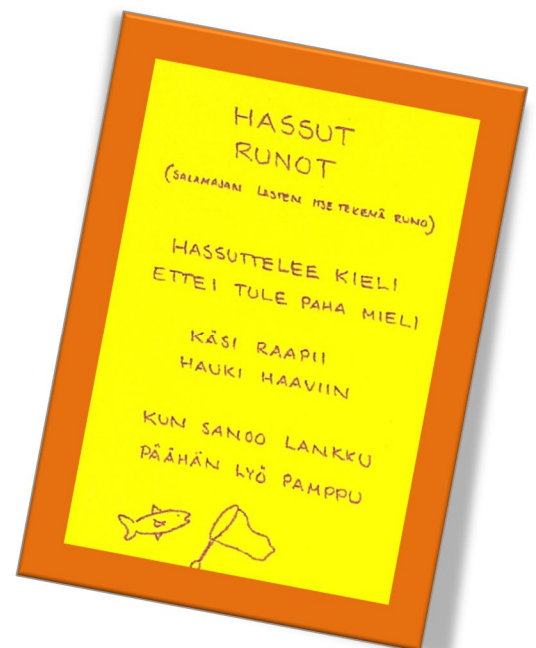 HASSUT
RUNOT
(SALAMAJAN LASTEN ITSE TEKEMÄ RUNO)
HASSUTTELEE KIELI
ETTEI TULE PAHA MIELI
KÄSI RAAPII
HAUKI HAAVIIN
KUN SANOO LANKKU
PÄÄHÄN LYÖ PAMPPU